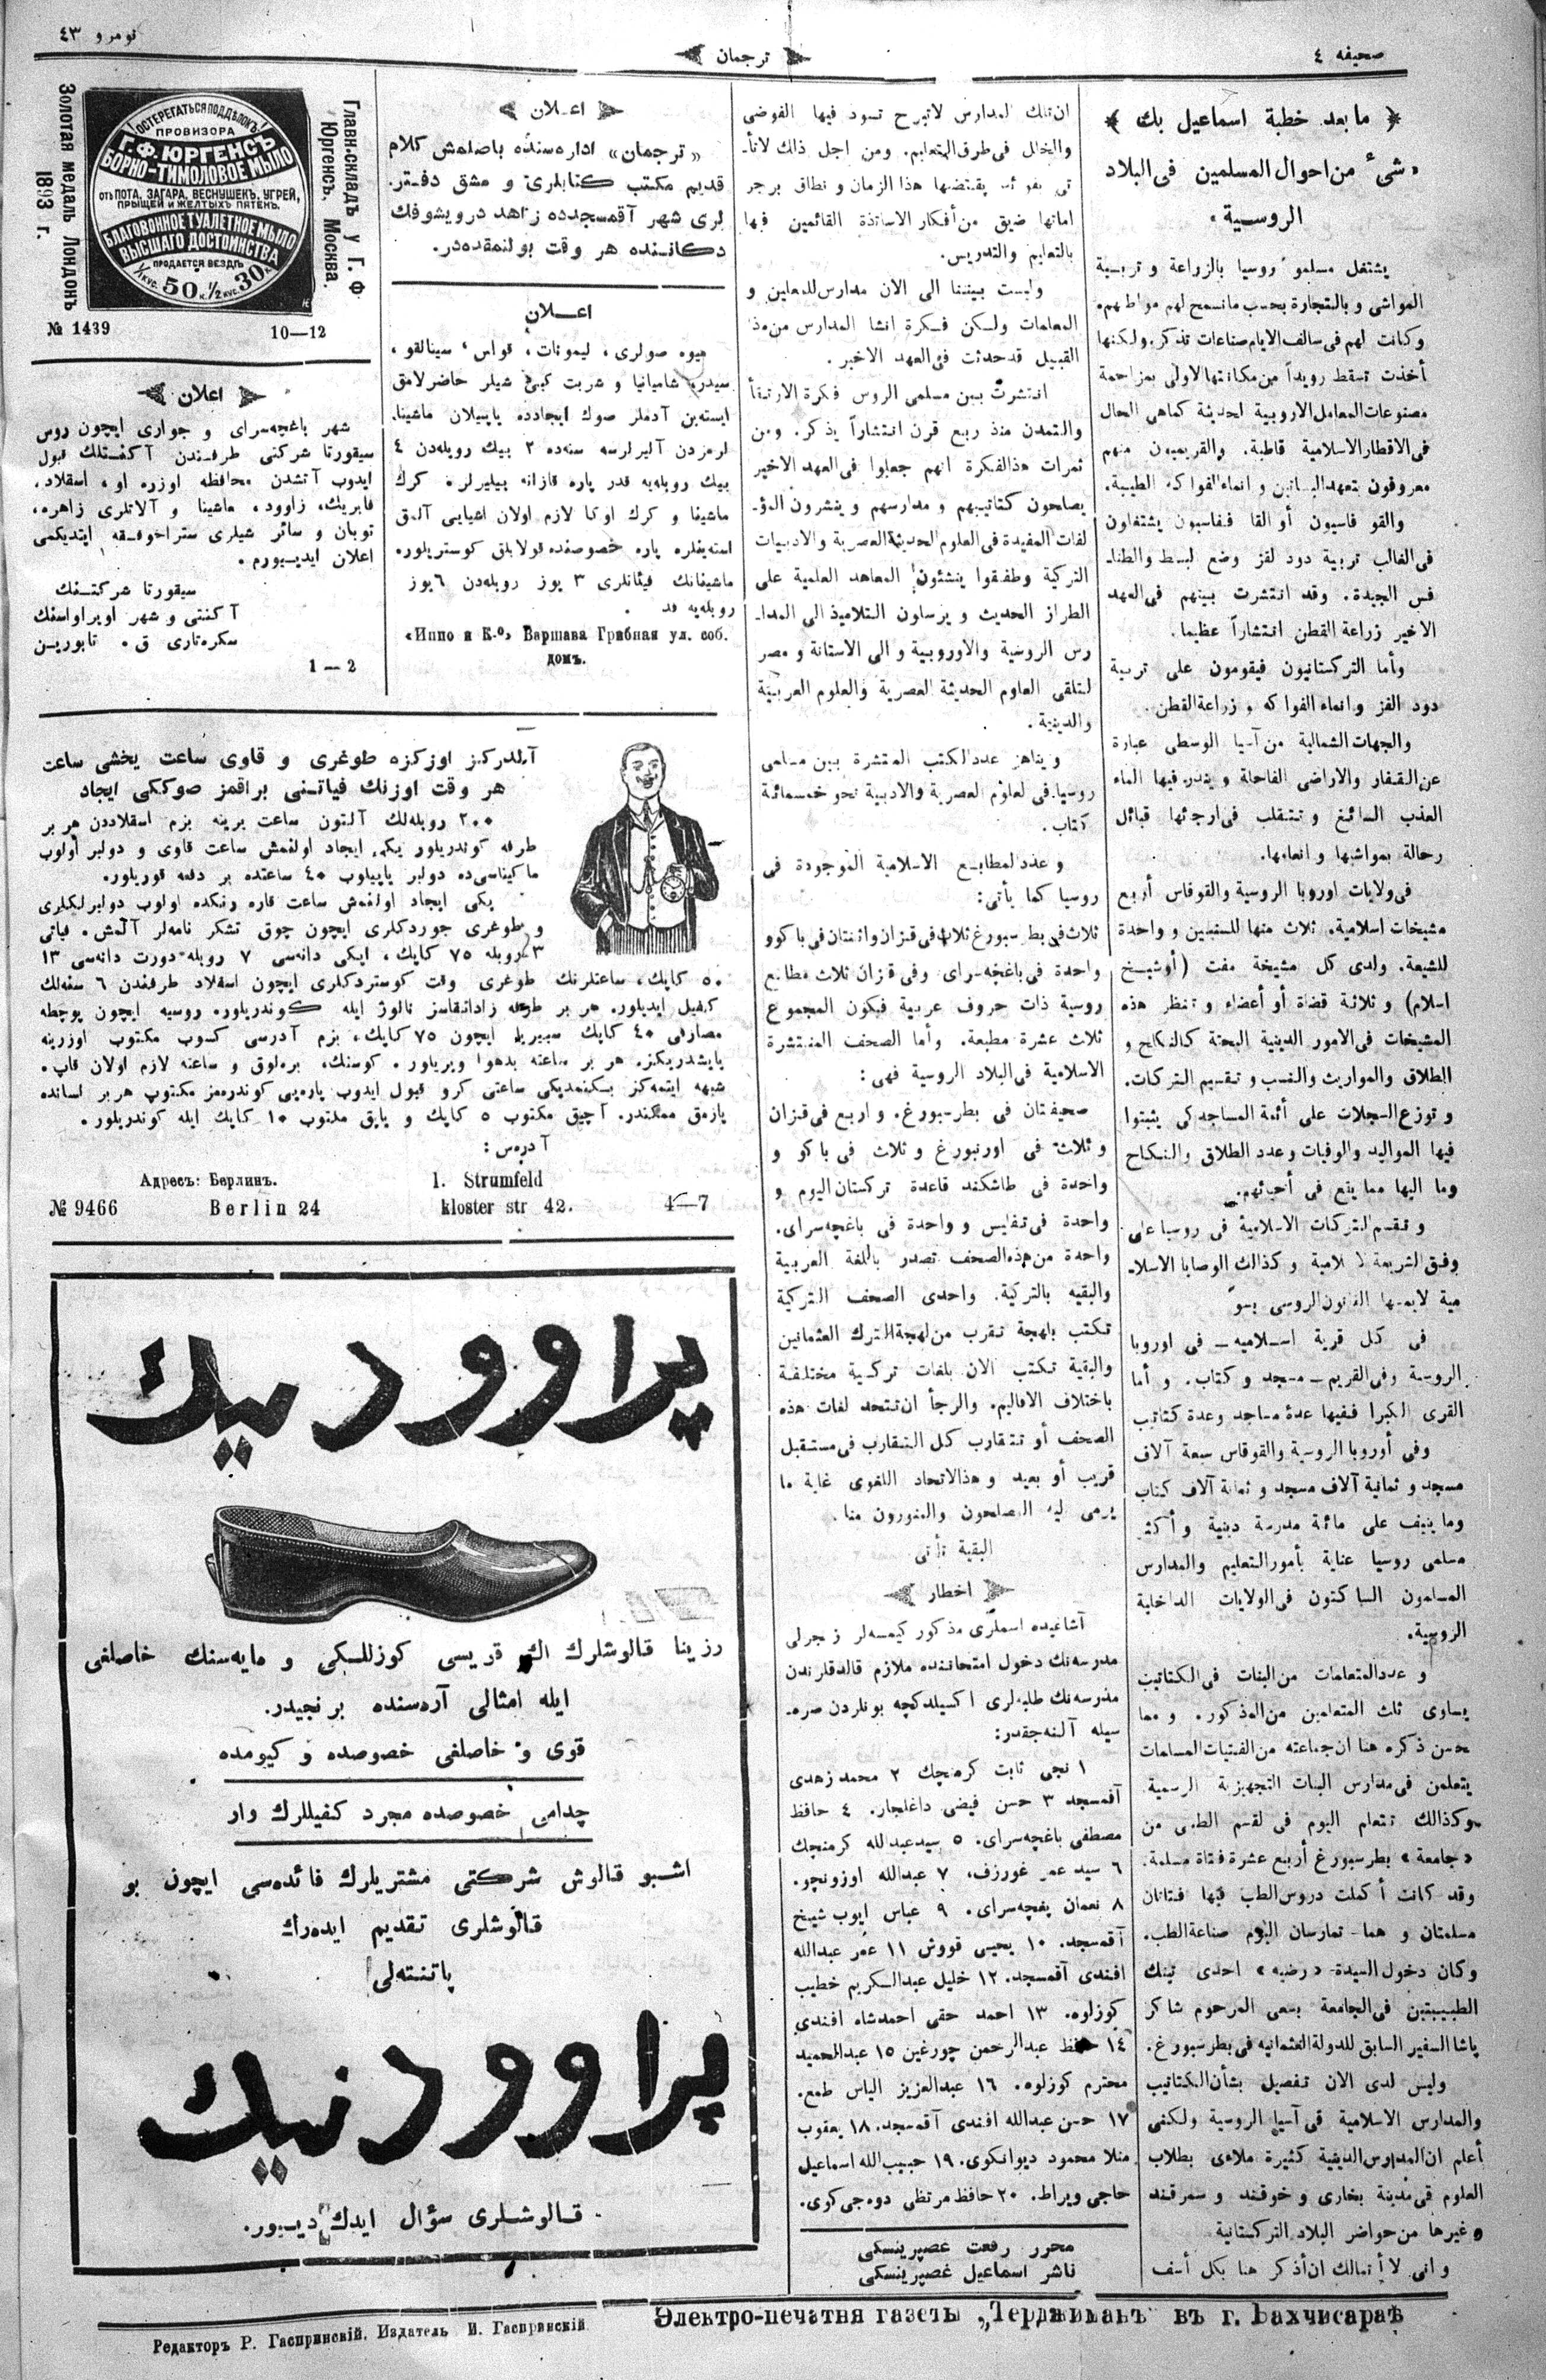 صحيفه ٤
ترجمان
نومرو ٤٣
ما بعد خطبة اسماعيل بك
«شئ من احوال المسلمين فى البلاد
الروسية»
يشتغل مسلمو روسيا بالزراعة و تربية
المواشى و بالتجارة بحسب ما تسمح لهم مواطنهم.
وكانت لهم فى سالف الايام صناعات تذكر. ولكنها
أخذت تسقط رويداً من مكانتها الاولى بمزاحمة
مصنوعات المعامل الاروبية الحديثة كما هى الحال
فى الاقطار الاسلامية قاطبة. والقريميون منهم
معروفون بتعهد البساتين و انماء الفواكه الطيبة.
والقوقاسيون أو القافقاسيون يشتغلون
فى الغالب تربية دود القز وضع البسط والطنا-
فس الجيدة. وقد انتشرت بينهم فى العهد
الاخير زراعة القطن انتشاراً عظيما.
وأما التركستانيون فيقومون على تربية
دود القز وانماء الفواكه و زراعة القطن.
والجهات الشمالية من آسيا الوسطى عبارة
عن القفار والاراضى القاحلة و يندر فيها الماء
العذب السائغ و تتقلب فى ارجائها قبائل
رحالة بمواشيها و انعامها.
فى ولايات اوروبا الروسية والقوقاس أربع
مشيخات اسلامية. ثلاث منها للسنيين و واحدة
للشيعة. ولدى كل مشيخة مفت (أو شيخ
اسلام) و ثلاثة قضاة أو أعضاء و تنظر هذه
المشيخات فى الامور الدينية البحتة كالنكاح و
الطلاق والمواريث والنسب و تقسيم التركات.
و توزع السجلات على أئمة المساجد كى يثبتوا
فيها المواليد والوفيات وعدد الطلاق والنكاح
وما اليها مما يقع فى أحيائهم.
و تقسم التركات الاسلامية فى روسيا على
وفق الشريعة الاسلامية و كذالك الوصايا الاسلا-
مية لا يمسها القانون الروسى بسوء
فى كل قرية اسلاميه ـ فى اوروبا
الروسية وفى القريم ـ مسجد و كتاب. و أما
القرى الكبرا ففيها عدة مساجد وعدة كتاتيب
وفى أوروبا الروسية والقوقاس سبعة آلاف
مسجد و ثمانية آلاف مسجد و ثمانية آلاف كتاب
وما ينيف على مائة مدرسة دينية و أكثر
مسلمى روسيا عناية بأمور التعليم والمدارس
المسلمون الساكنون فى الولايات الداخلية
الروسية.
و عدد المتعلمات من البنات فى الكتاتيب
يساوى ثلث المتعلمين من الذكور. و مما
حسن ذكره هنا ان جماعته من الفتيات المسلمات
يتعلمن فى مدارس البنات التجهيزية الرسمية.
وكذالك تتعلم اليوم فى القسم الطبى من
«جامعة» بطرسبورغ أربع عشرة فتاة مسلمة.
وقد كانت أكملت دروس الطب فيها فتاتان
مسلمتان و هما تمارسان اليوم صناعة الطب.
وكان دخول السيدة «رضيه» احدى تينك
الطبيبتين فى الجامعة بسعى المرحوم شاكر
پاشا السفير السابق للدولة العثمانيه فى بطرسبورغ.
وليس لدى الان تفصيل بشأن الكتاتيب
والمدارس الاسلامية فى آسيا الروسية ولكننى
أعلم ان المدارس الدينية كثيرة ملاءى بطلاب
العلوم فى مدينة بخارى و خوقند و سمرقند
و غيرها من حواضر البلاد التركستانية
و انى لا أتمالك ان أذكر هنا بكل أسف
ان تلك المدارس لا تبرح تسود فيها الفوضى
والخلل فى طرق التعليم. ومن اجل ذلك لا تأ-
تى بفوائد يقتضيها هذا الزمان و نطاق برجر
اماتها ضيق من أفكار الاساتذة القائمين فيها
بالتعليم والتدريس.
وليست بيننا الى الان مدارس للمعلمين و
المعلمات ولكن فكرة انشا المدارس من هذا
القبيل قد حدثت فى العهد الاخير.
انتشرت بين مسلمى الروس فكرة الارتقأ
والتمدن منذ ربع قرن انتشاراً يذكر. ومن
ثمرات هذه الفكرة انهم جعلوا فى العهد الاخير
يصلحون كتاتيبهم و مدارسهم و ينشرون المؤ-
لفات المفيدة فى العلوم الحديثة العصرية والادبيات
التركية وطفقوا ينشئون المعاهد العلمية على
الطراز الحديث و يرسلون التلاميذ الى المدا-
رس الروسية والاوروبية و الى الاستانة و مصر
لتلقى العلوم الحديثة العصرية والعلوم العربية
والدينية.
و يناهز عدد الكتب المنتشرة بين مسلمى
روسيا فى العلوم العصرية والادبية نحو خمسمائة
كتاب.
و عدد المطابع الاسلامية الموجودة فى
روسيا كما يأتى:
ثلاث فى بطرسبورغ ثلاث فى قزان واثنتان فى باكو و
واحدة فى باغچه سراى وفى قزان ثلاث مطابع
روسية ذات حروف عربية فيكون المجموع
ثلاث عشرة مطبعة. وأما الصحف المنتشرة
الاسلامية فى البلاد الروسية فهى:
صحيفتان فى بطرسبورغ. و اربع فى قزان
و ثلاثة فى اورنبورغ و ثلاث فى باكو و
واحدة فى طاشكند قاعدة تركستان اليوم و
واحدة فى تفليس و واحدة فى باغچه سراى.
واحدة من هذه الصحف تصدر باللغة العربية
والبقيه بالتركية. واحدى الصحف التركية
تكتب بلهجة تقرب من لهجة الترك العثمانين
والبقية تكتب الان بلغات تركية مختلفة
باختلاف الاقاليم. والرجأ ان تتحد لغات هذه
الصحف أو تتقارب كل التقارب فى مستقبل
قريب أو بعيد و هذا الاتحاد اللغوى غاية ما
يرمى ليه المصلحون والمنورون منا.
البقية تأتى
اخطار
آشاغيده اسملرى مذكور كيمسه لر زنجرلى
مدرسه نك دخول امتحاننده ملازم قالدقلرندن
مدرسه نك طلبه لرى اكسيلدكچه بونلردن صره-
سيله آلنه جقدر:
١ نجى ثابت كرمنچك ٢ محمد زهدى
آقمسجد ٣ حسن فيضى داغلجار. ٤ حافظ
مصطفى باغچه سراى. ٥ سيد عبدالله كرمنچك
٦ سيد عمر غورزف، ٧ عبدالله اوزونجو.
٨ نعمان بغچه سراى. ٩ عباس ايوب شيخ
آقمسجد. ١٠ يحيى قووش ١١ عمر عبدالله
افندى آقمسجد. ١٢ خليل عبدالكريم خطيب
كوزلوه. ١٣ احمد حقى احمدشاه افندى
١٤ حافظ عبدالرحمن چورغين ١٥ عبدالحميد
محترم كوزلوه. ١٦ عبدالعزيز الياس طمع.
١٧ حسن عبدالله افندى آقمسجد. ١٨ يعقوب
منلا محمود ديوانكوى. ١٩ حبيب الله اسماعيل
حاجى ويراط. ٢٠ حافظ مرتظى دوه جى كوى.
محرر رفعت غصپرينسكى
ناشر اسماعيل غصپرينسكى
اعلان
«ترجمان» اداره سنده باصلمش كلام
قديم مكتب كتابلرى و مشق دفتر-
لرى شهر آقمسجدده زاهد درويشوفك
دكاننده هر وقت بولنمقده در.
اعلان
ميوه صولرى، ليمونات، قواس، سينالقو،
سيدر، شامپانيا و شربت كبى شيلر حاضرلامق
ايسته ين آدملر صوك ايجادده ياپيلان ماشينا-
لرمزدن آليرلرسه سنه ده ٢ بيك روبله دن ٤
بيك روبله يه قدر پاره قازانه بيليرلر. كرك
ماشينا و كرك اوكا لازم اولان اشيايى آلمق
استه ينلره پاره خصوصنده قولايلق كوستريلور.
ماشينانك فيئاتلرى ٣ يوز روبله دن ٦ يوز
روبله يه قد.
«Иппо и К-о» Варшава Грибная ул. соб.
домъ.
Главн. складъ у Г. Ф.
Юргенсъ, Москва.
ОСТЕРЕГАТЬСЯ ПОДДѢЛОКЪ!
ПРОВИЗОРА
Г. Ф. ЮРГЕНСЪ
БОРНО-ТИМОЛОВОЕ МЫЛО
отъ ПОТА, ЗАГАРА, ВЕСНУШЕКЪ, УГРЕЙ,
ПРЫЩЕЙ и ЖЕЛТЫХЪ ПЯТЕНЪ.
БЛАГОВОННОЕ ТУАЛЕТНОЕ МЫЛО
ВЫСШАГО ДОСТОИНСТВА
ПРОДАЕТСЯ ВЕЗДѢ
1/1 кус. 50 к. 1/2 кус. 30 к.
Золотая медаль Лондонъ
1893 г.
№ 1439 10—12
اعلان
شهر باغچه سراى و جوارى ايچون روس
سيقورتا شركتى طرفندن آكنتلك قبول
ايدوب آتشدن محافظه اوزره او، اسقلاد،
فابريك، زاوود، ماشينا و آلاتلرى زاهره،
توبان و سائر شيلرى ستراخوفقه ايتديكمى
اعلان ايديورم.
سيقورتا شركتنك
آكنتى و شهر اوپراواسنك
سكره تارى ق. تابورين
1—2
آلدركز اوزكزه طوغرى و قاوى ساعت يخشى ساعت
هر وقت اوزنك فياتنى براقمز صوككى ايجاد
٢٠٠ روبله لك آلتون ساعت برينه بزم اسقلاددن هر بر
طرفه كوندريلور يكى ايجاد اولنمش ساعت قاوى و دولبر اولوب
ماكيناسى ده دولبر ياپيلوب ٤٠ ساعتده بر دفعه قوريلور.
يكى ايجاد اولنمش ساعت قاره رنكده اولوب دولبرلكلرى
و طوغرى جوردكلرى ايچون چوق تشكر نامه لر آلمش. فياتى
٣ روبله ٧٥ كاپك، ايكى دانه سى ٧ روبله دورت دانه سى ١٣
٥٠ كاپك، ساعتلرنك طوغرى وقت كوستردكلرى ايچون اسقلاد طرفندن ٦ سنه لك
كفيل ايديلور. هر بر طرفه زاداتقاسز نالوژ ايله كوندريلور. روسيه ايچون پوچطه
مصارفى ٤٠ كاپك سيبيريا ايچون ٧٥ كاپك، بزم آدرسى كسوب مكتوب اوزرينه
ياپشدريكز. هر بر ساعته بدهوا ويريلور. كوستك، بره لوق و ساعته لازم اولان قاپ.
شبهه ايتمه كز بكنمديكى ساعتى كرو قبول ايدوب پاره يى كوندره مز مكتوب هر بر لسانده
يازمق ممكندر. آچيق مكتوب ٥ كاپك و ياپق مكتوب ١٠ كاپك ايله كوندريلور.
آدرس:
Адресъ: Берлинъ. I. Strumfeld
№ 9466 Berlin 24 kloster str 42. 4—7
پراوودنيك
رزينا قالوشلرك اك قريسى كوزللكى و مايه سنك خاصلغى
ايله امثالى آره سنده برنجيدر.
قوى و خاصلغى خصوصده و كيومده
چدامى خصوصده مجرد كفيللرك وار
اشبو قالوش شركتى مشتريلرك فائده سى ايچون بو
قالوشلرى تقديم ايده رك
پاتنته لى
پراوودنيك
قالوشلرى سؤال ايدك ديبور.
Редакторъ Р. Гаспринскій. Издатель И. Гаспринскій.
Электро-печатня газеты „Терджиманъ" въ г. Бахчисараѣ